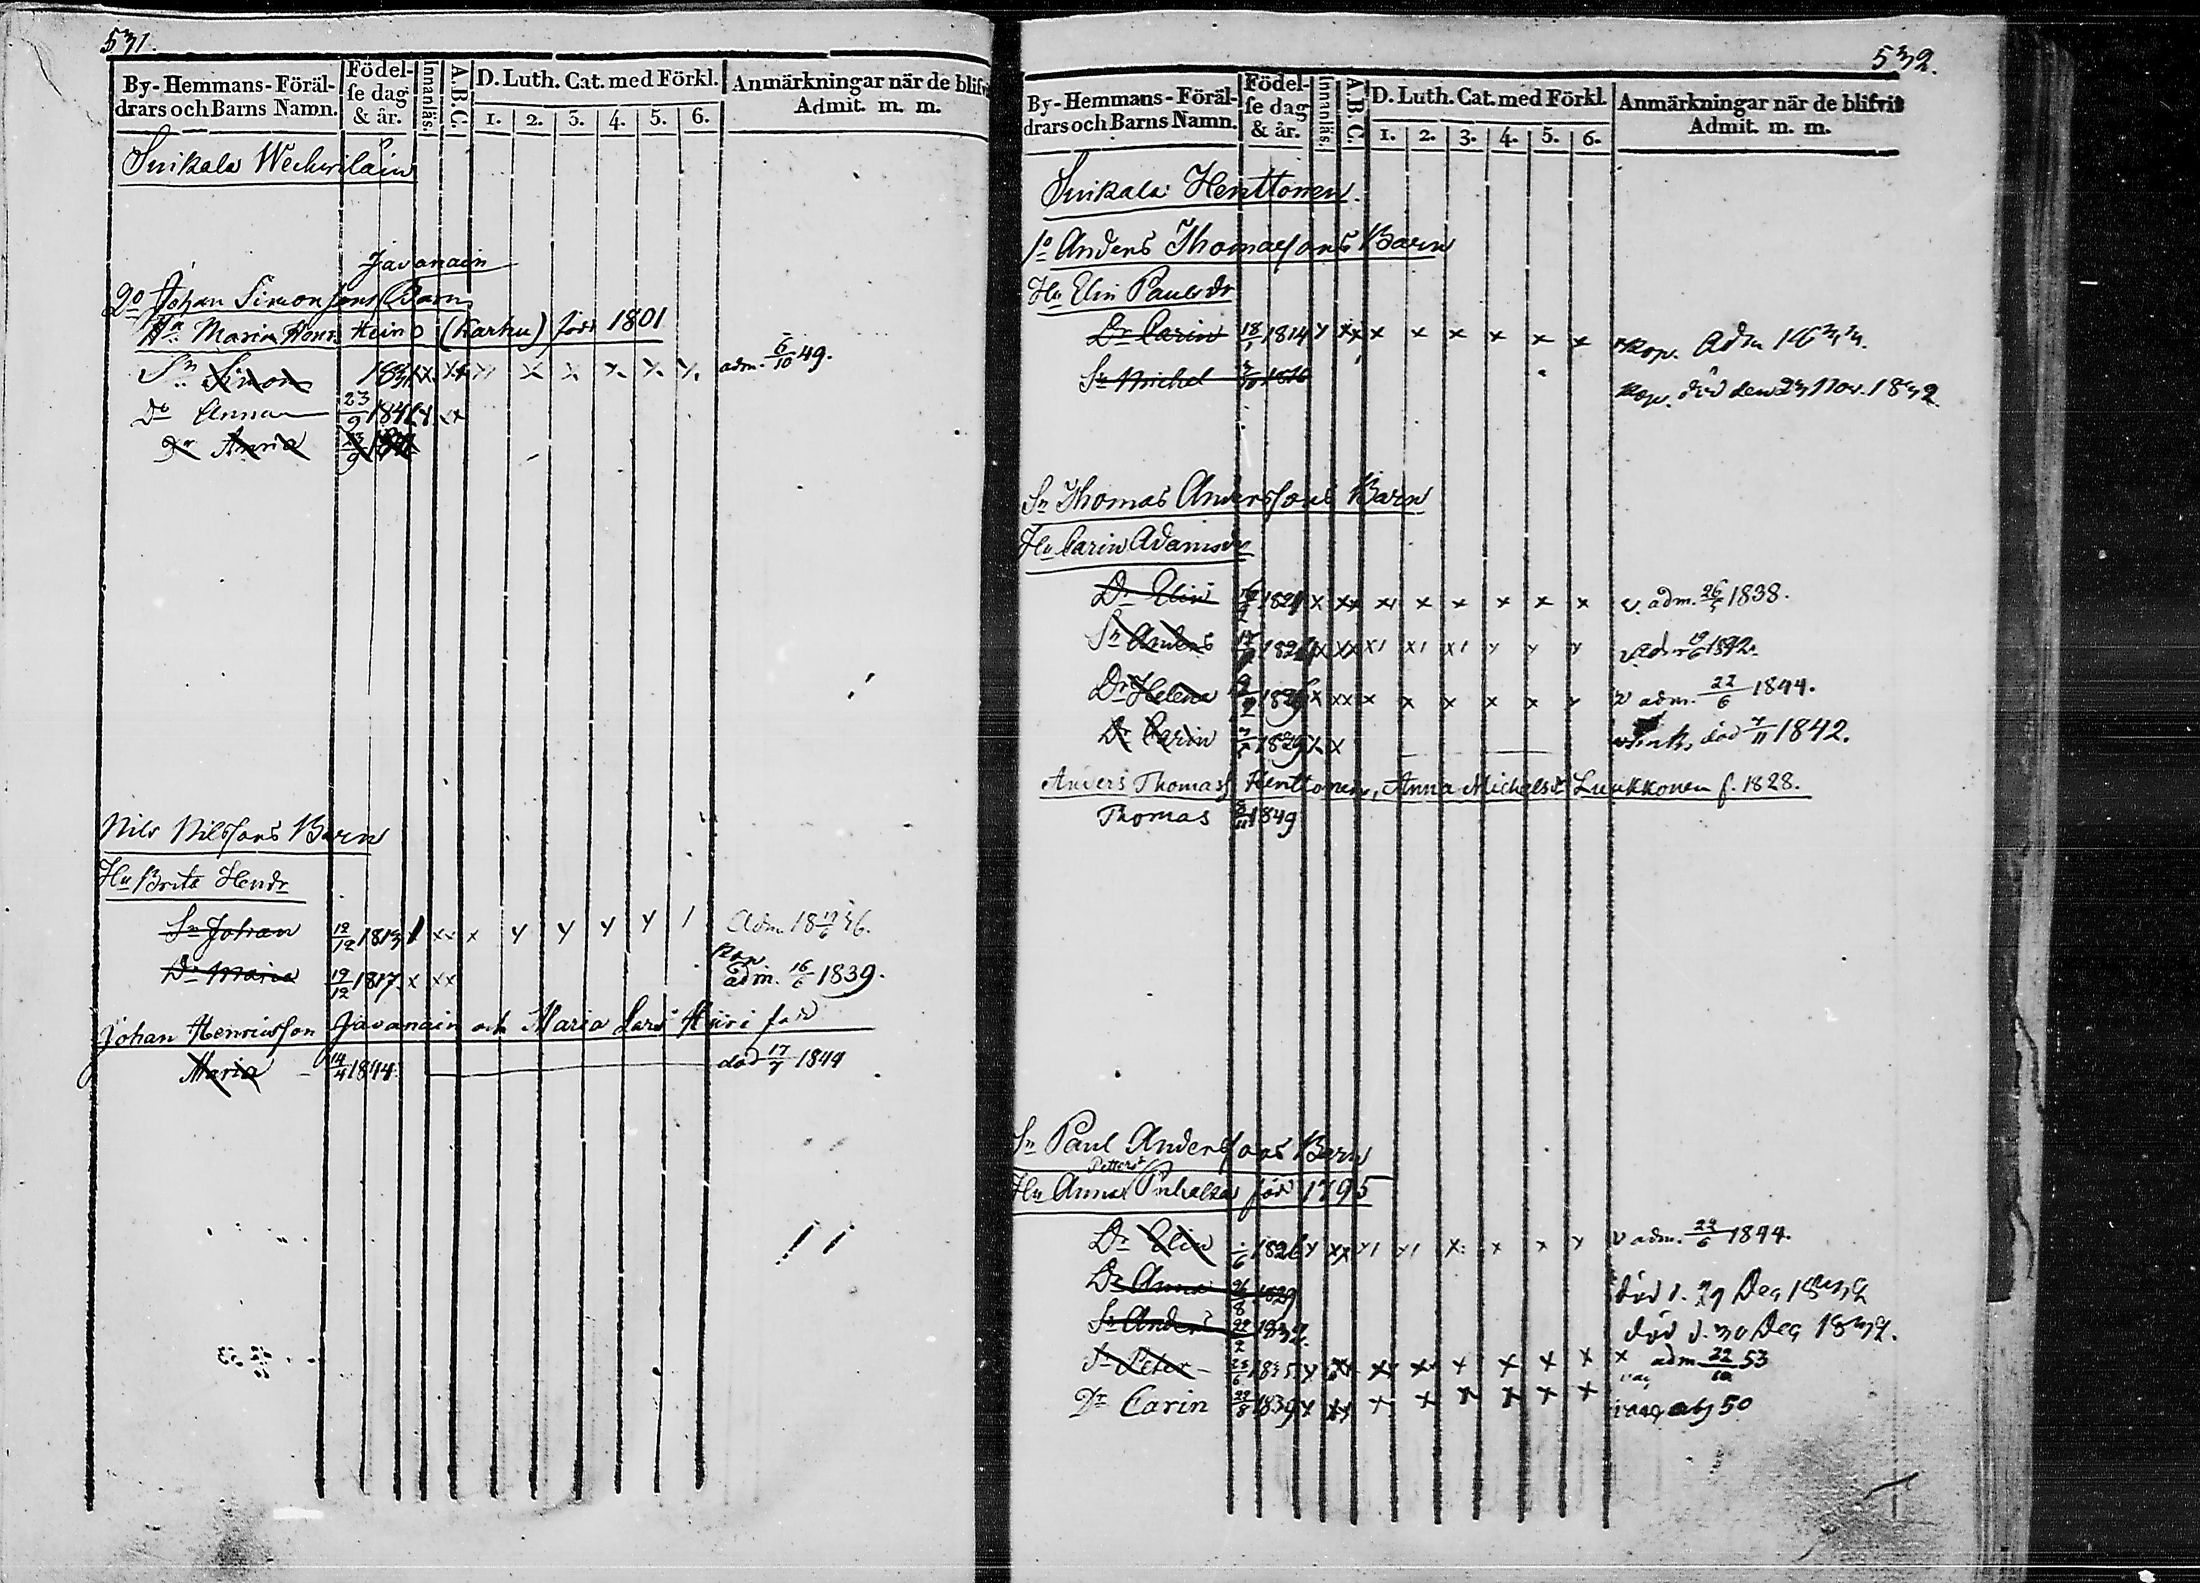 531.
By-Hemmans-Föräl-
drars och Barns Namn.
Födel-
se dag
& år.
Innanläs.
A.B.C.
D. Luth. Cat. med Förkl.
1. 2. 3. 4. 5. 6.
Anmärkningar när de blifvi
Admit. m. m.
Suikala Weckwiläin
Javanain
2o Johan Simonsons Barn
Hu Maria Heino (Karhu) född 1801
Sn Simon x x x x x adm. 6/10 49.
Dr Anna 23/9 1841 x xx
Dr Anna 23/9
Nils Nilssons Barn
Hu Brita Hendr
Sn Johan 12/12 1813 xx x y y y y Adm.
Kop.
Dr Maria 19/12 1817 x xx adm. 16/6 1839.
Johan Henricsson Javanain och Maria Lars Hiiri
Maria 14/4 1844. död 17/7 1844
532.
By-Hemmans-Föräl-
drars och Barns Namn.
Födel-
se dag
& år.
Innanläs.
A.B.C.
D. Luth. Cat. med Förkl.
1. 2. 3. 4. 5. 6.
Anmärkningar när de blifvit
Admit. m. m.
Suikala Henttonen.
1o Anders Thomassons Barn
Hu Elin Paulsdr
Dr Carin 18/1 1814 y xx x x x x x x Kop. Adm
Sn Michel 1816 Kop. död den 23 Nov. 1832
Sn Thomas Anderssons Barn
Hu Carin Adamsdr
Dr Elin 1821 x xx x x x x x x v. adm. 26/5 1838.
Sn Anders x xx x x x y y y 1842.
Dr Helena x xx x x x x x y v adm. 22/6 1844.
Dr Carin 1829 x x död 7/11 1842.
Anders Thomass Henttonen, Anna Michelsd. Luukkonen f. 1828.
Thomas 1849
Sn Paul Anderssons Barn
Petters
Hu Anna född 1795
Dr Elin 1826 y xx y y x x x y v adm. 22/6 1844.
Dr Anna 26/8 1829 död d. 29 Dec 1832
Sn Anders 22/2 1832. död d. 30 Dec 1832.
Sn Peter 1835 x xx xx xx x x x x x adm 22/10 53
Dr Carin 22/8 1839 x xx x x x x x x 50